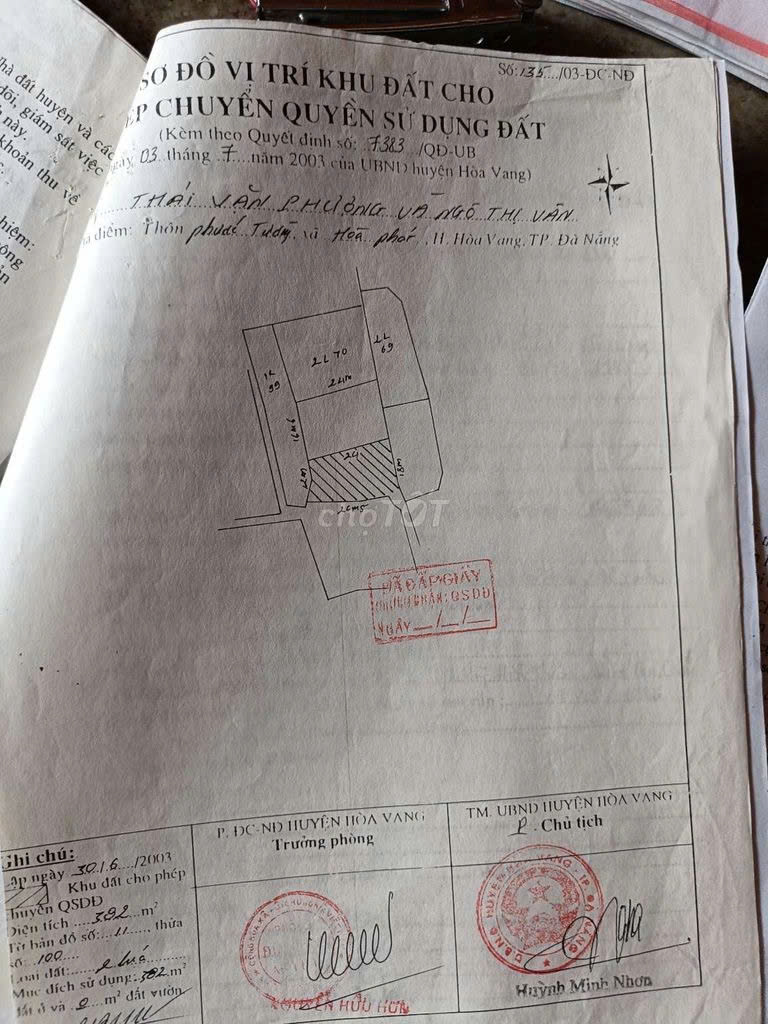 Số: 135.../03-ĐC-NĐ
SƠ ĐỒ VỊ TRÍ KHU ĐẤT CHO
ÉP CHUYỂN QUYỀN SỬ DỤNG ĐẤT
(Kèm theo Quyết định số: 7383 /QĐ-UB
gày 03 tháng 7 năm 2003 của UBND huyện Hòa Vang)
THÁI VĂN PHƯƠNG VÀ NGÔ THỊ VÂN
a điểm: Thôn phước Tường, xã Hoà phát, H. Hòa Vang, TP. Đà Nẵng
nhà đất huyện và các
dõi, giám sát việc
này.
khoản thu về
hiệm:
2L 70
24m
2L
69
1L
99
16m9
24
12m
18m
26m5
chợTỐT
ĐÃ CẤP GIẤY
CHỨNG NHẬN: QSDĐ
NGÀY __/__/__
Ghi chú:
ập ngày 30/6.../2003
Khu đất cho phép
chuyển QSDĐ
Diện tích ....382... m²
Tờ bản đồ số:..11..., thửa
số: 100....
Loại đất: 2 lúa
Mục đích sử dụng: 382 m²
đất ở và 0 m² đất vườn
P. ĐC-NĐ HUYỆN HÒA VANG
Trưởng phòng
NGUYỄN HỮU HƠN
TM. UBND HUYỆN HÒA VANG
P. Chủ tịch
U.B.N.D HUYỆN HÒA VANG - T.P ĐÀ NẴNG
Huỳnh Minh Nhơn